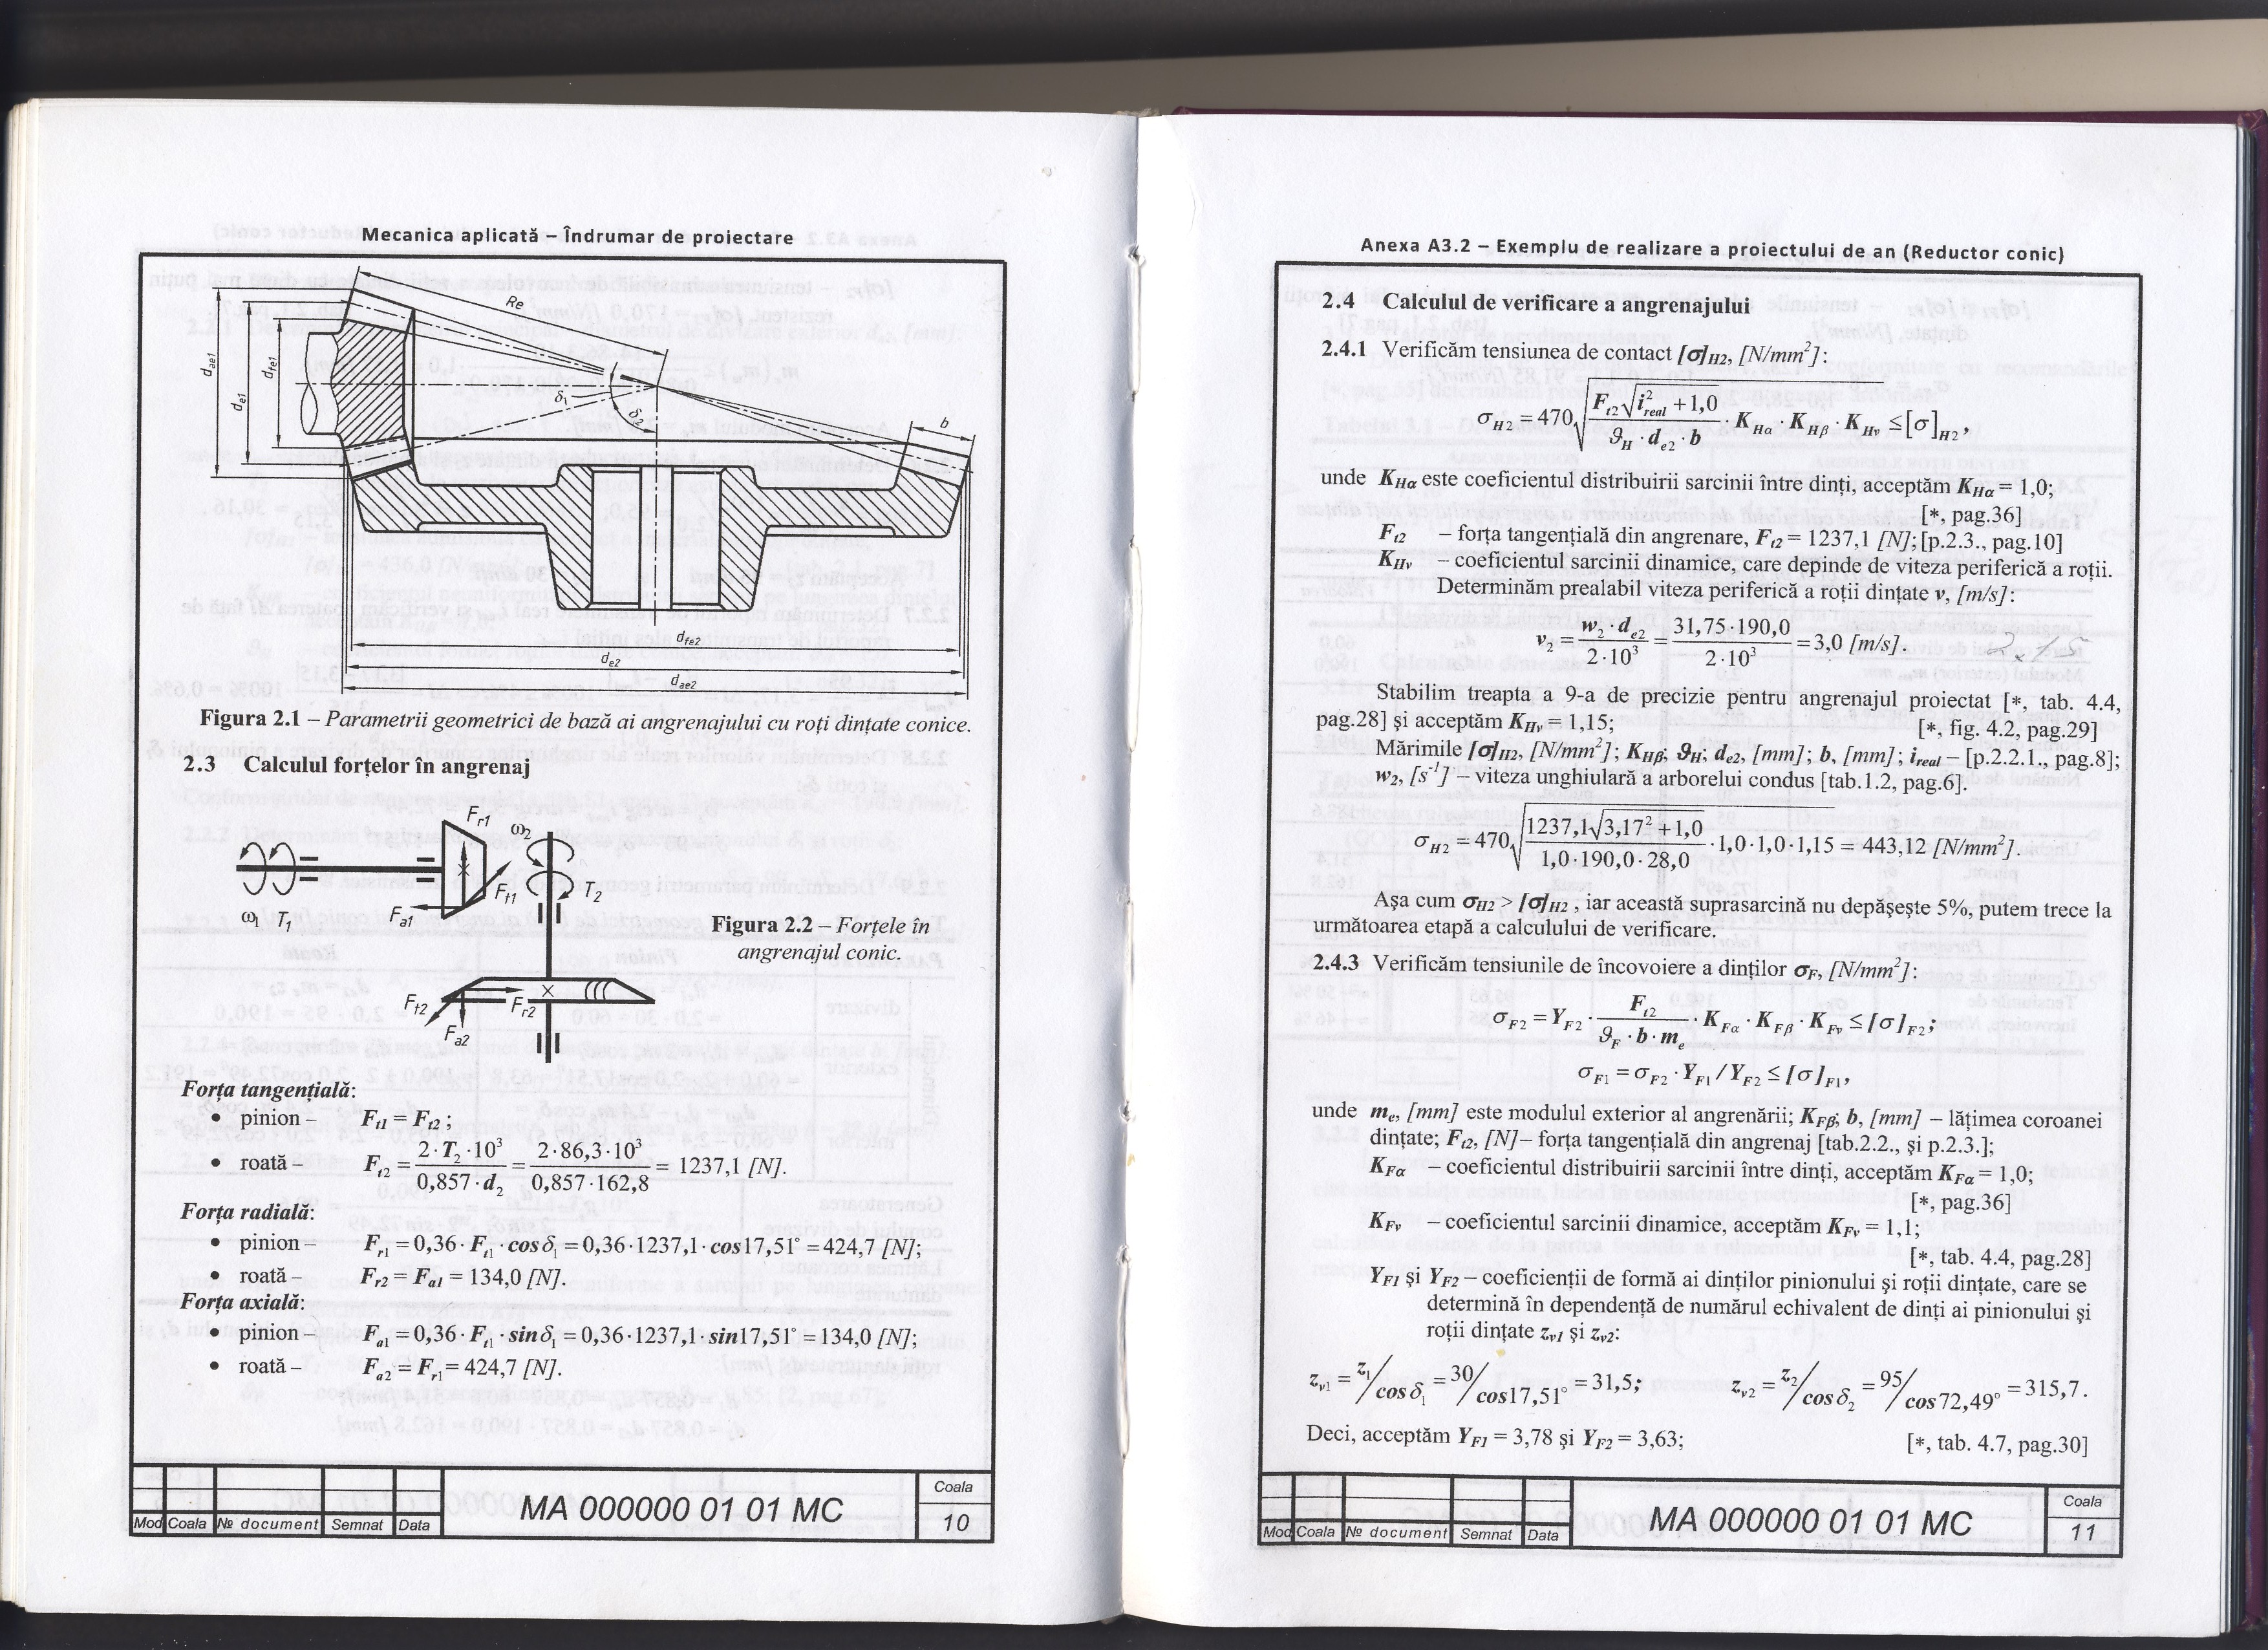 Mecanica aplicată – Îndrumar de proiectare
Re
dae1
de1
dfe1
δ1
δ2
b
dfe2
de2
dae2
Figura 2.1 – Parametrii geometrici de bază ai angrenajului cu roți dințate conice.
2.3 Calculul forțelor în angrenaj
Fr1
ω2
Ft1
T2
Fa1
ω1 T1
Figura 2.2 – Forțele în
angrenajul conic.
Ft2
Fr2
Fa2
Forța tangențială:
• pinion – Ft1 = Ft2 ;
• roată – Ft2 = 2·T2·10³ / 0,857·d2 = 2·86,3·10³ / 0,857·162,8 = 1237,1 [N].
Forța radială:
• pinion – Fr1 = 0,36· Ft1 · cosδ1 = 0,36·1237,1· cos17,51° = 424,7 [N];
• roată – Fr2 = Fa1 = 134,0 [N].
Forța axială:
• pinion – Fa1 = 0,36· Ft1 · sinδ1 = 0,36·1237,1· sin17,51° = 134,0 [N];
• roată – Fa2 = Fr1 = 424,7 [N].
Mod Coala № document Semnat Data
MA 000000 01 01 MC
Coala
10
Anexa A3.2 – Exemplu de realizare a proiectului de an (Reductor conic)
2.4 Calculul de verificare a angrenajului
2.4.1 Verificăm tensiunea de contact [σ]H2, [N/mm²]:
σH2 = 470 √(Ft2 √(i²real +1,0) / ϑH · de2 · b · KHα · KHβ · KHv) ≤ [σ]H2,
unde KHα este coeficientul distribuirii sarcinii între dinți, acceptăm KHα = 1,0;
[*, pag.36]
Ft2 – forța tangențială din angrenare, Ft2 = 1237,1 [N]; [p.2.3., pag.10]
KHv – coeficientul sarcinii dinamice, care depinde de viteza periferică a roții.
Determinăm prealabil viteza periferică a roții dințate v, [m/s]:
v2 = w2 · de2 / 2·10³ = 31,75·190,0 / 2·10³ = 3,0 [m/s].
Stabilim treapta a 9-a de precizie pentru angrenajul proiectat [*, tab. 4.4,
pag.28] și acceptăm KHv = 1,15; [*, fig. 4.2, pag.29]
Mărimile [σ]H2, [N/mm²]; KHβ; ϑH; de2, [mm]; b, [mm]; ireal – [p.2.2.1., pag.8];
w2, [s⁻¹] – viteza unghiulară a arborelui condus [tab.1.2, pag.6].
σH2 = 470 √(1237,1√(3,17² +1,0) / 1,0·190,0·28,0 ·1,0·1,0·1,15) = 443,12 [N/mm²].
Așa cum σH2 > [σ]H2 , iar această suprasarcină nu depășește 5%, putem trece la
următoarea etapă a calculului de verificare.
2.4.3 Verificăm tensiunile de încovoiere a dinților σF, [N/mm²]:
σF2 = YF2 · Ft2 / ϑF · b · me · KFα · KFβ · KFv ≤ [σ]F2;
σF1 = σF2 · YF1 / YF2 ≤ [σ]F1,
unde me, [mm] este modulul exterior al angrenării; KFβ; b, [mm] – lățimea coroanei
dințate; Ft2, [N]– forța tangențială din angrenaj [tab.2.2., și p.2.3.];
KFα – coeficientul distribuirii sarcinii între dinți, acceptăm KFα = 1,0;
[*, pag.36]
KFv – coeficientul sarcinii dinamice, acceptăm KFv = 1,1;
[*, tab. 4.4, pag.28]
YF1 și YF2 – coeficienții de formă ai dinților pinionului și roții dințate, care se
determină în dependență de numărul echivalent de dinți ai pinionului și
roții dințate zv1 și zv2:
zv1 = z1/cosδ1 = 30/cos17,51° = 31,5; zv2 = z2/cosδ2 = 95/cos72,49° = 315,7.
Deci, acceptăm YF1 = 3,78 și YF2 = 3,63; [*, tab. 4.7, pag.30]
Mod Coala № document Semnat Data
MA 000000 01 01 MC
Coala
11